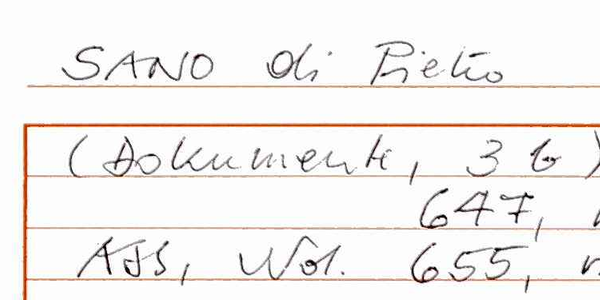 SANO di Pietro
(Dokumente, 3 b)
647,
ASS, Vol. 655,